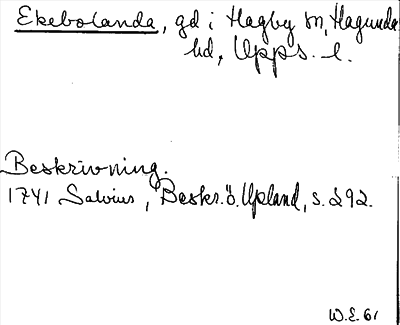 Ekebolanda, gd i Hagby sn, Hagunda
hd, Upps. l.
Beskrivning.
1741 Salvius, Beskr. ö. Upland, s. 292.
W.E. 61